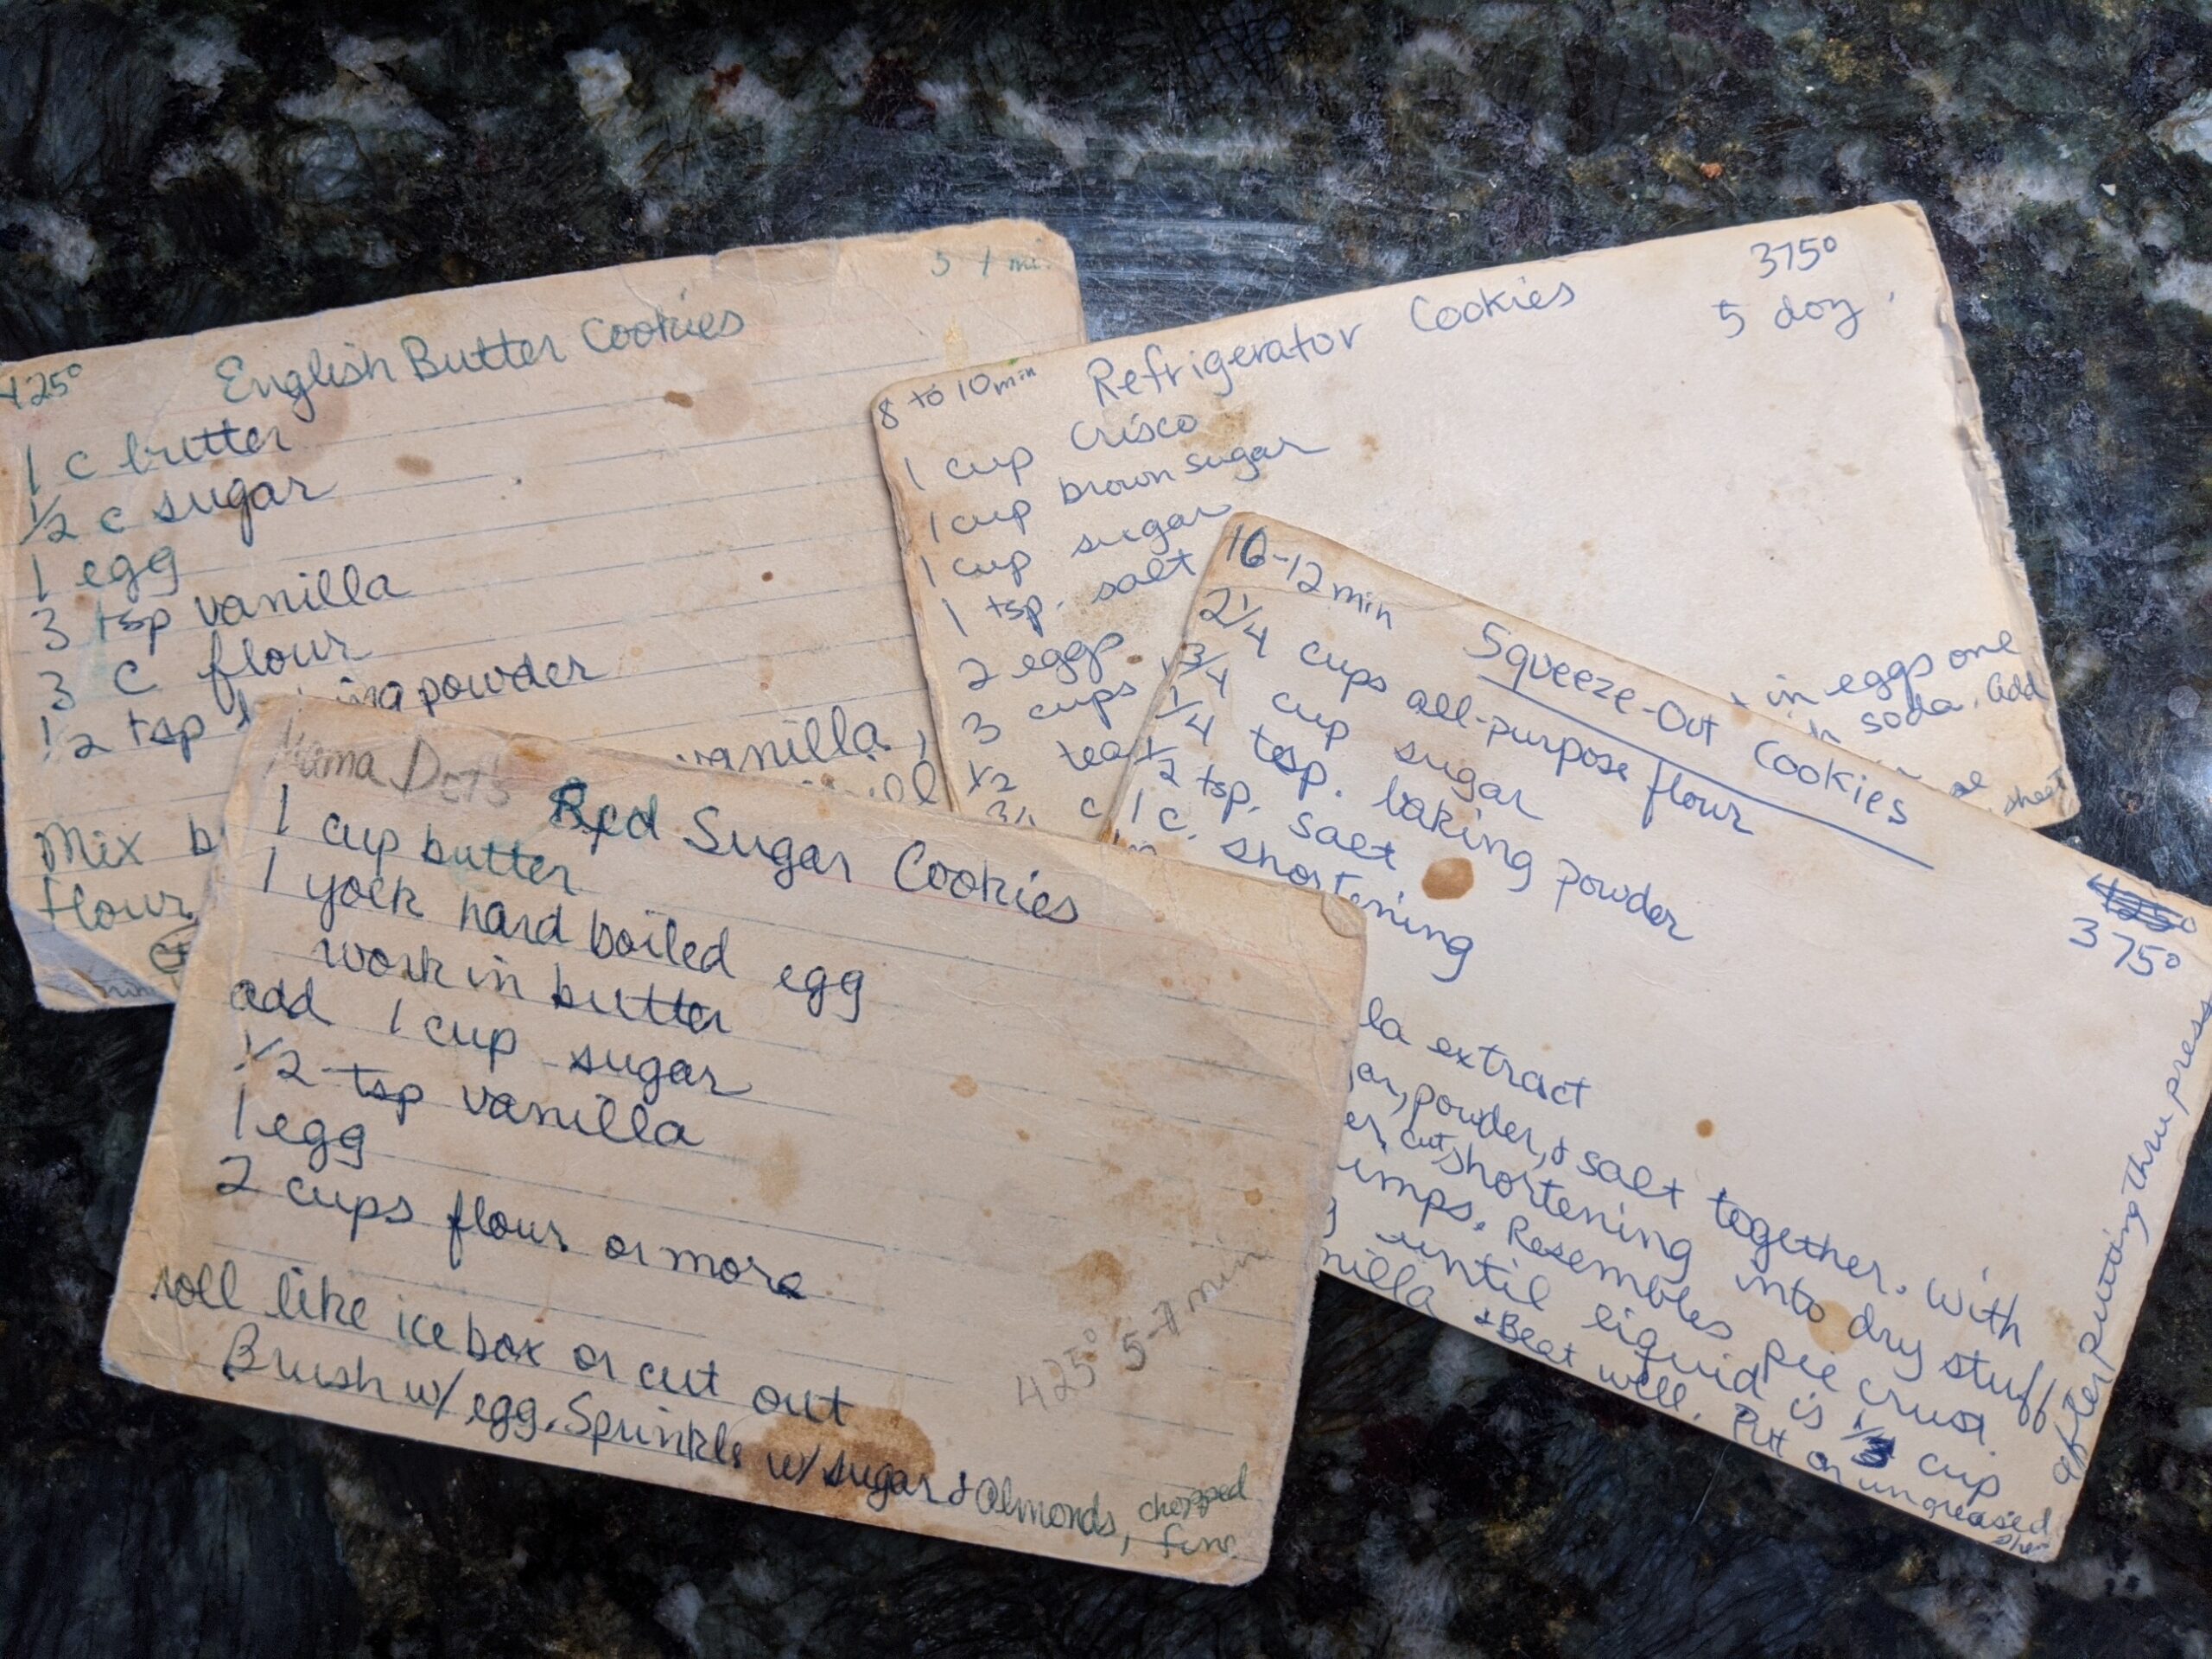 425°
English Butter Cookies
1 c butter
1/2 c sugar
1 egg
3 tsp vanilla
3 c flour
1/2 tsp powder
vanilla,
Mix
flour
375°
5 doz.
8 to 10 min
Refrigerator Cookies
1 cup Crisco
1 cup brown sugar
1 cup sugar
1 tsp. salt
2 eggs
3 cups
1/2
in eggs one
soda. add
sheet
10-12 min
Squeeze-Out Cookies
375°
2 1/4 cups all-purpose flour
3/4 cup sugar
1/4 tsp. baking powder
1/2 tsp. salt
1 c. shortening
extract
powder, & salt together. With
cut shortening into dry stuff
Resembles pie crust.
until liquid is 1/3 cup
& Beat well. Put on ungreased
after putting thru press
Mama Dot's
Red Sugar Cookies
1 cup butter
1 yolk hard boiled egg
work in butter
add 1 cup sugar
1/2 tsp vanilla
1 egg
2 cups flour or more
roll like ice box or cut out
Brush w/ egg. Sprinkle w/ sugar & Almonds, chopped
fine
425° 5-7 min